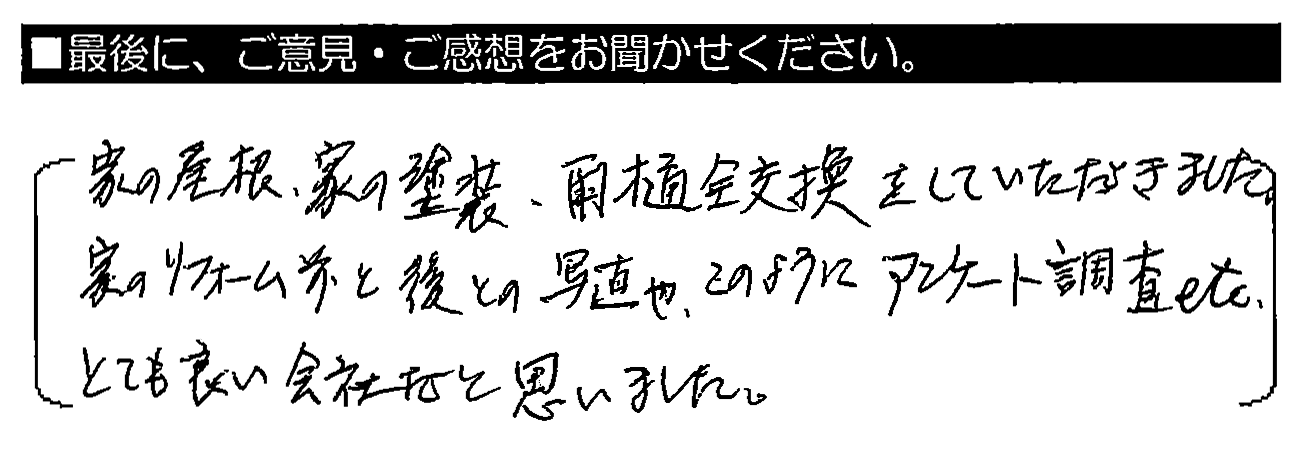 ■最後に、ご意見・ご感想をお聞かせください。
家の屋根、家の塗装、雨樋全交換をしていただきました。
家のリフォーム前と後との写真や、このようにアンケート調査etc、
とても良い会社だと思いました。